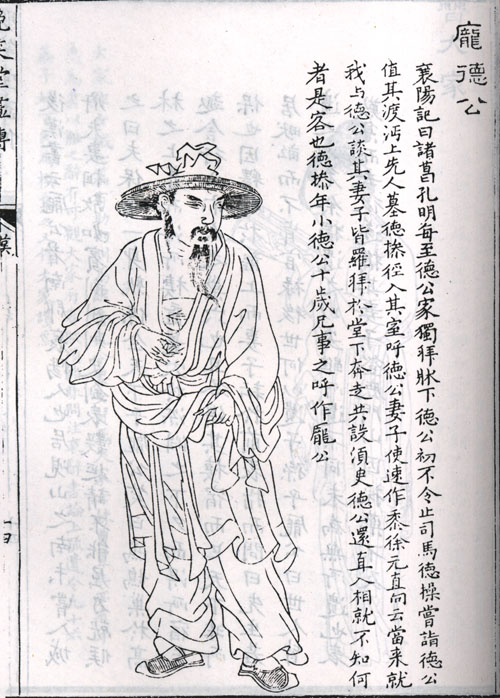 龐德公
襄陽記曰諸葛孔明每至德公家獨拜牀下德公初不令止司馬德操嘗詣德公
值其渡沔上先人墓德操徑入其室呼德公妻子使速作黍徐元直向云當來就
我与德公談其妻子皆羅拜於堂下奔走共設湏臾德公還直入相就不知何
者是客也德操年小德公十歲兄事之呼作龐公
晚笑堂畫傳
漢